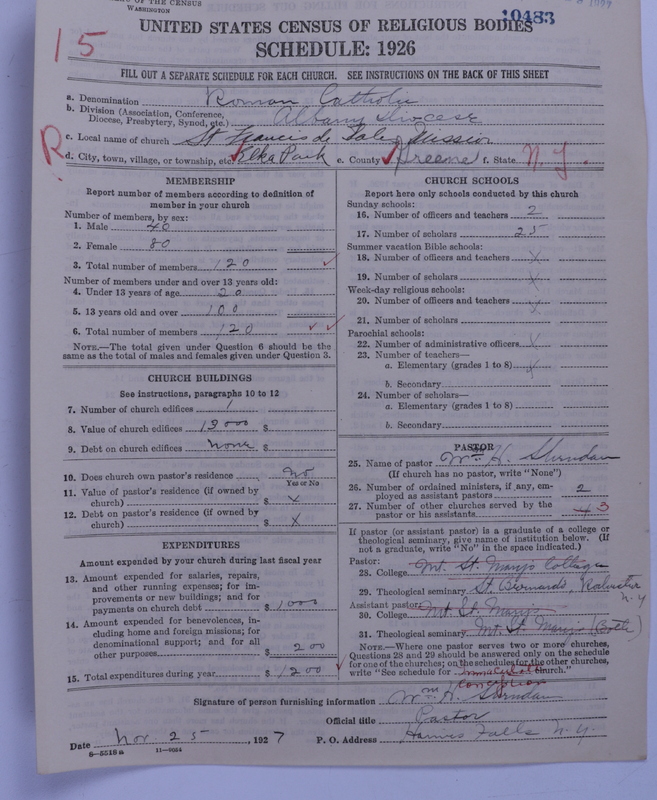 OF THE CENSUS
WASHINGTON
10483
15
UNITED STATES CENSUS OF RELIGIOUS BODIES
SCHEDULE: 1926
FILL OUT A SEPARATE SCHEDULE FOR EACH CHURCH. SEE INSTRUCTIONS ON THE BACK OF THIS SHEET
a. Denomination Roman Catholic
b. Division (Association, Conference, Diocese, Presbytery, Synod, etc.) Albany Diocese
R
c. Local name of church St Francis de Sales Mission
d. City, town, village, or township, etc. Elka Park e. County Greene f. State N.Y.
MEMBERSHIP
Report number of members according to definition of
member in your church
Number of members, by sex:
1. Male 40
2. Female 80
3. Total number of members 120
Number of members under and over 13 years old:
4. Under 13 years of age 20
5. 13 years old and over 100
6. Total number of members 120
NOTE.—The total given under Question 6 should be
same as the total of males and females given under Question 3.
CHURCH BUILDINGS
See instructions, paragraphs 10 to 12
7. Number of church edifices 1
8. Value of church edifices $
9. Debt on church edifices none $
10. Does church own pastor's residence No
Yes or No
11. Value of pastor's residence (if owned by
church) $ X
12. Debt on pastor's residence (if owned by
church) $ X
EXPENDITURES
Amount expended by your church during last fiscal year
13. Amount expended for salaries, repairs,
and other running expenses; for im-
provements or new buildings; and for
payments on church debt $ 1000
14. Amount expended for benevolences, in-
cluding home and foreign missions; for
denominational support; and for all
other purposes $ 200
15. Total expenditures during year $ 1200
CHURCH SCHOOLS
Report here only schools conducted by this church
Sunday schools:
16. Number of officers and teachers 2
17. Number of scholars 25
Summer vacation Bible schools:
18. Number of officers and teachers X
19. Number of scholars X
Week-day religious schools:
20. Number of officers and teachers X
21. Number of scholars
Parochial schools:
22. Number of administrative officers X
23. Number of teachers—
a. Elementary (grades 1 to 8) X
b. Secondary
24. Number of scholars—
a. Elementary (grades 1 to 8)
b. Secondary
PASTOR
25. Name of pastor Wm H.
(If church has no pastor, write "None")
26. Number of ordained ministers, if any, em-
ployed as assistant pastors 2
27. Number of other churches served by the
pastor or his assistants 3
If pastor (or assistant pastor) is a graduate of a college or
theological seminary, give name of institution below. (If
not a graduate, write "No" in the space indicated.)
Pastor:
28. College Mt. St. Marys College
29. Theological seminary St Bernards, N.Y
Assistant pastor:
30. College Mt St. Marys
31. Theological seminary Mt. St. Marys (Both)
NOTE.—Where one pastor serves two or more churches,
Questions 28 and 29 should be answered only on the schedule
for one of the churches; on the schedules for the other churches,
write "See schedule for Immaculate Conception church."
Signature of person furnishing information Wm H.
Official title Pastor
Date Nov. 25, 1927 P. O. Address Falls N.Y.
6—5518a 11—9034